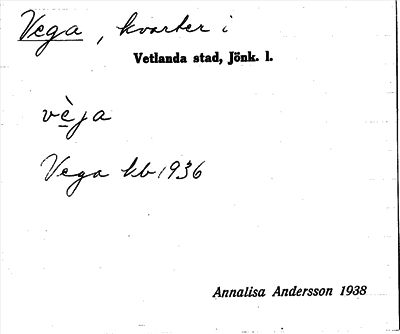 Vega, kvarter i
Vetlanda stad, Jönk. l.
vèja
Vega kb 1936
Annalisa Andersson 1938